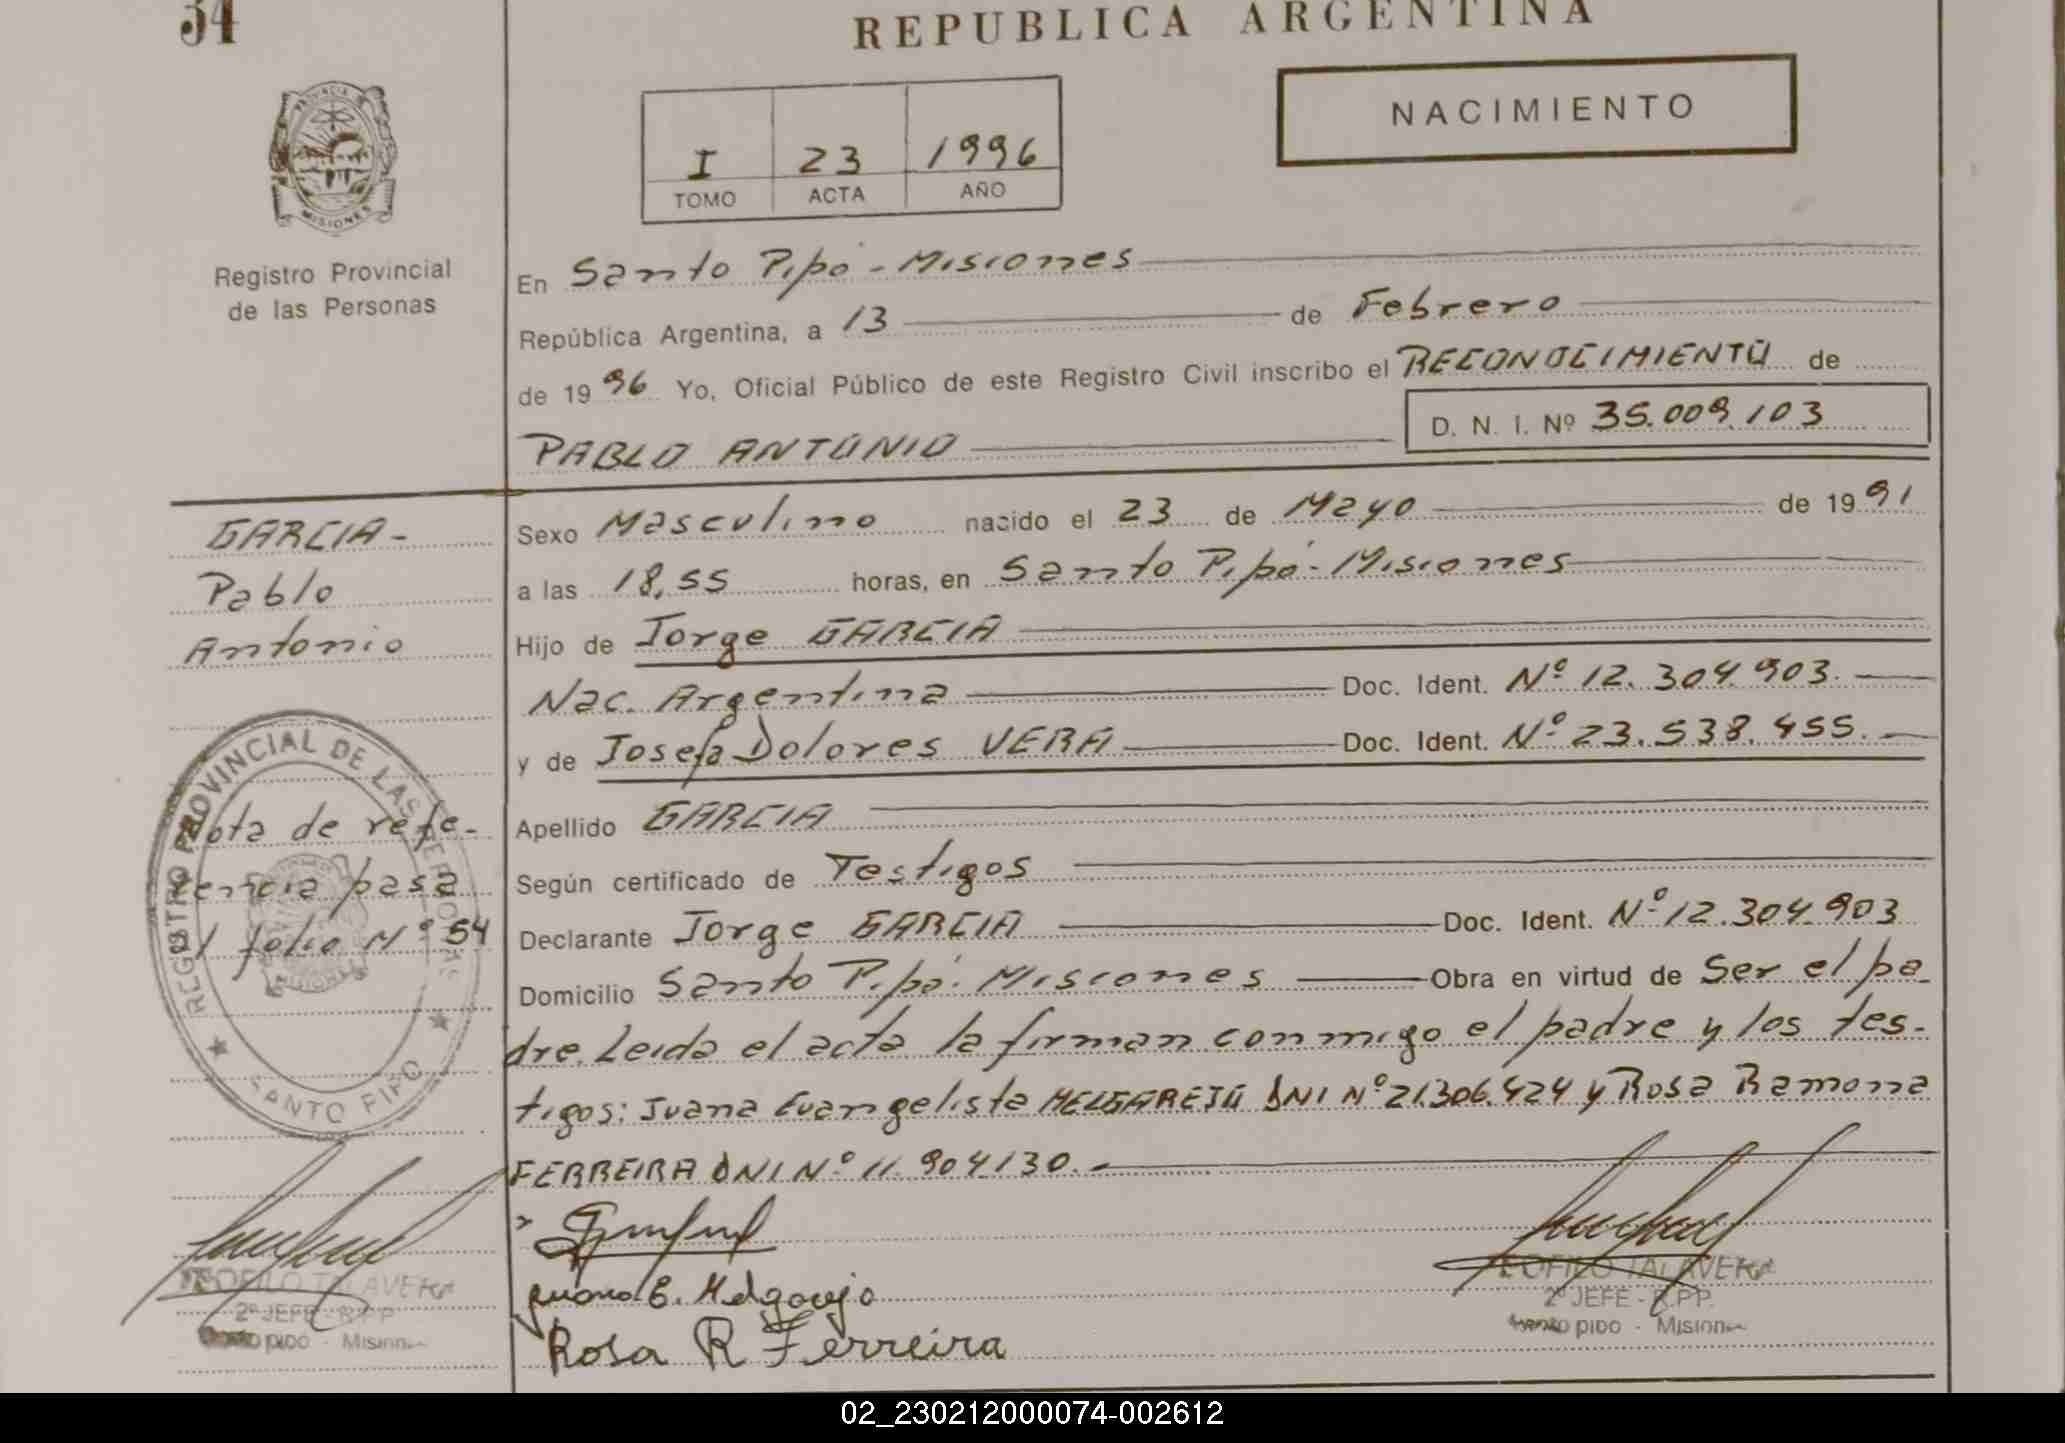 34
REPUBLICA ARGENTINA
NACIMIENTO
I 23 1996
TOMO ACTA AÑO
PROVINCIA DE
MISIONES
Registro Provincial
de las Personas
En Santo Pipó - Misiones
República Argentina, a 13 de Febrero
de 1996 Yo, Oficial Público de este Registro Civil inscribo el RECONOCIMIENTO de
D. N. I. Nº 35.009.103
PABLO ANTONIO
GARCIA -
Pablo
Antonio
Sexo Masculino nacido el 23 de Mayo de 1991
a las 18,55 horas, en Santo Pipó - Misiones
Hijo de Jorge GARCIA
Nac. Argentina Doc. Ident. Nº 12.304.903.
y de Josefa Dolores VERA Doc. Ident. Nº 23.538.455.
Apellido GARCIA
Según certificado de Testigos
Declarante Jorge GARCIA Doc. Ident. Nº 12.304.903
Domicilio Santo Pipó - Misiones Obra en virtud de Ser el pa-
dre. Leida el acta la firman conmigo el padre y los tes-
tigos: Juana Evangelista MELGAREJO DNI Nº 21.306.424 y Rosa Ramona
FERREIRA DNI Nº 11.904.130.-
Nota de refe-
rencia pasa
al folio Nº 54
REGISTRO PROVINCIAL DE LAS PERSONAS
MISIONES
SANTO PIPO
Juana E. Melgarejo
Rosa R Ferreira
TEOFILO TALAVERA
2º JEFE - R.P.P.
Santo pipó - Misiones
TEOFILO TALAVERA
2º JEFE - R.P.P.
Santo pipó - Misiones
02_230212000074-002612